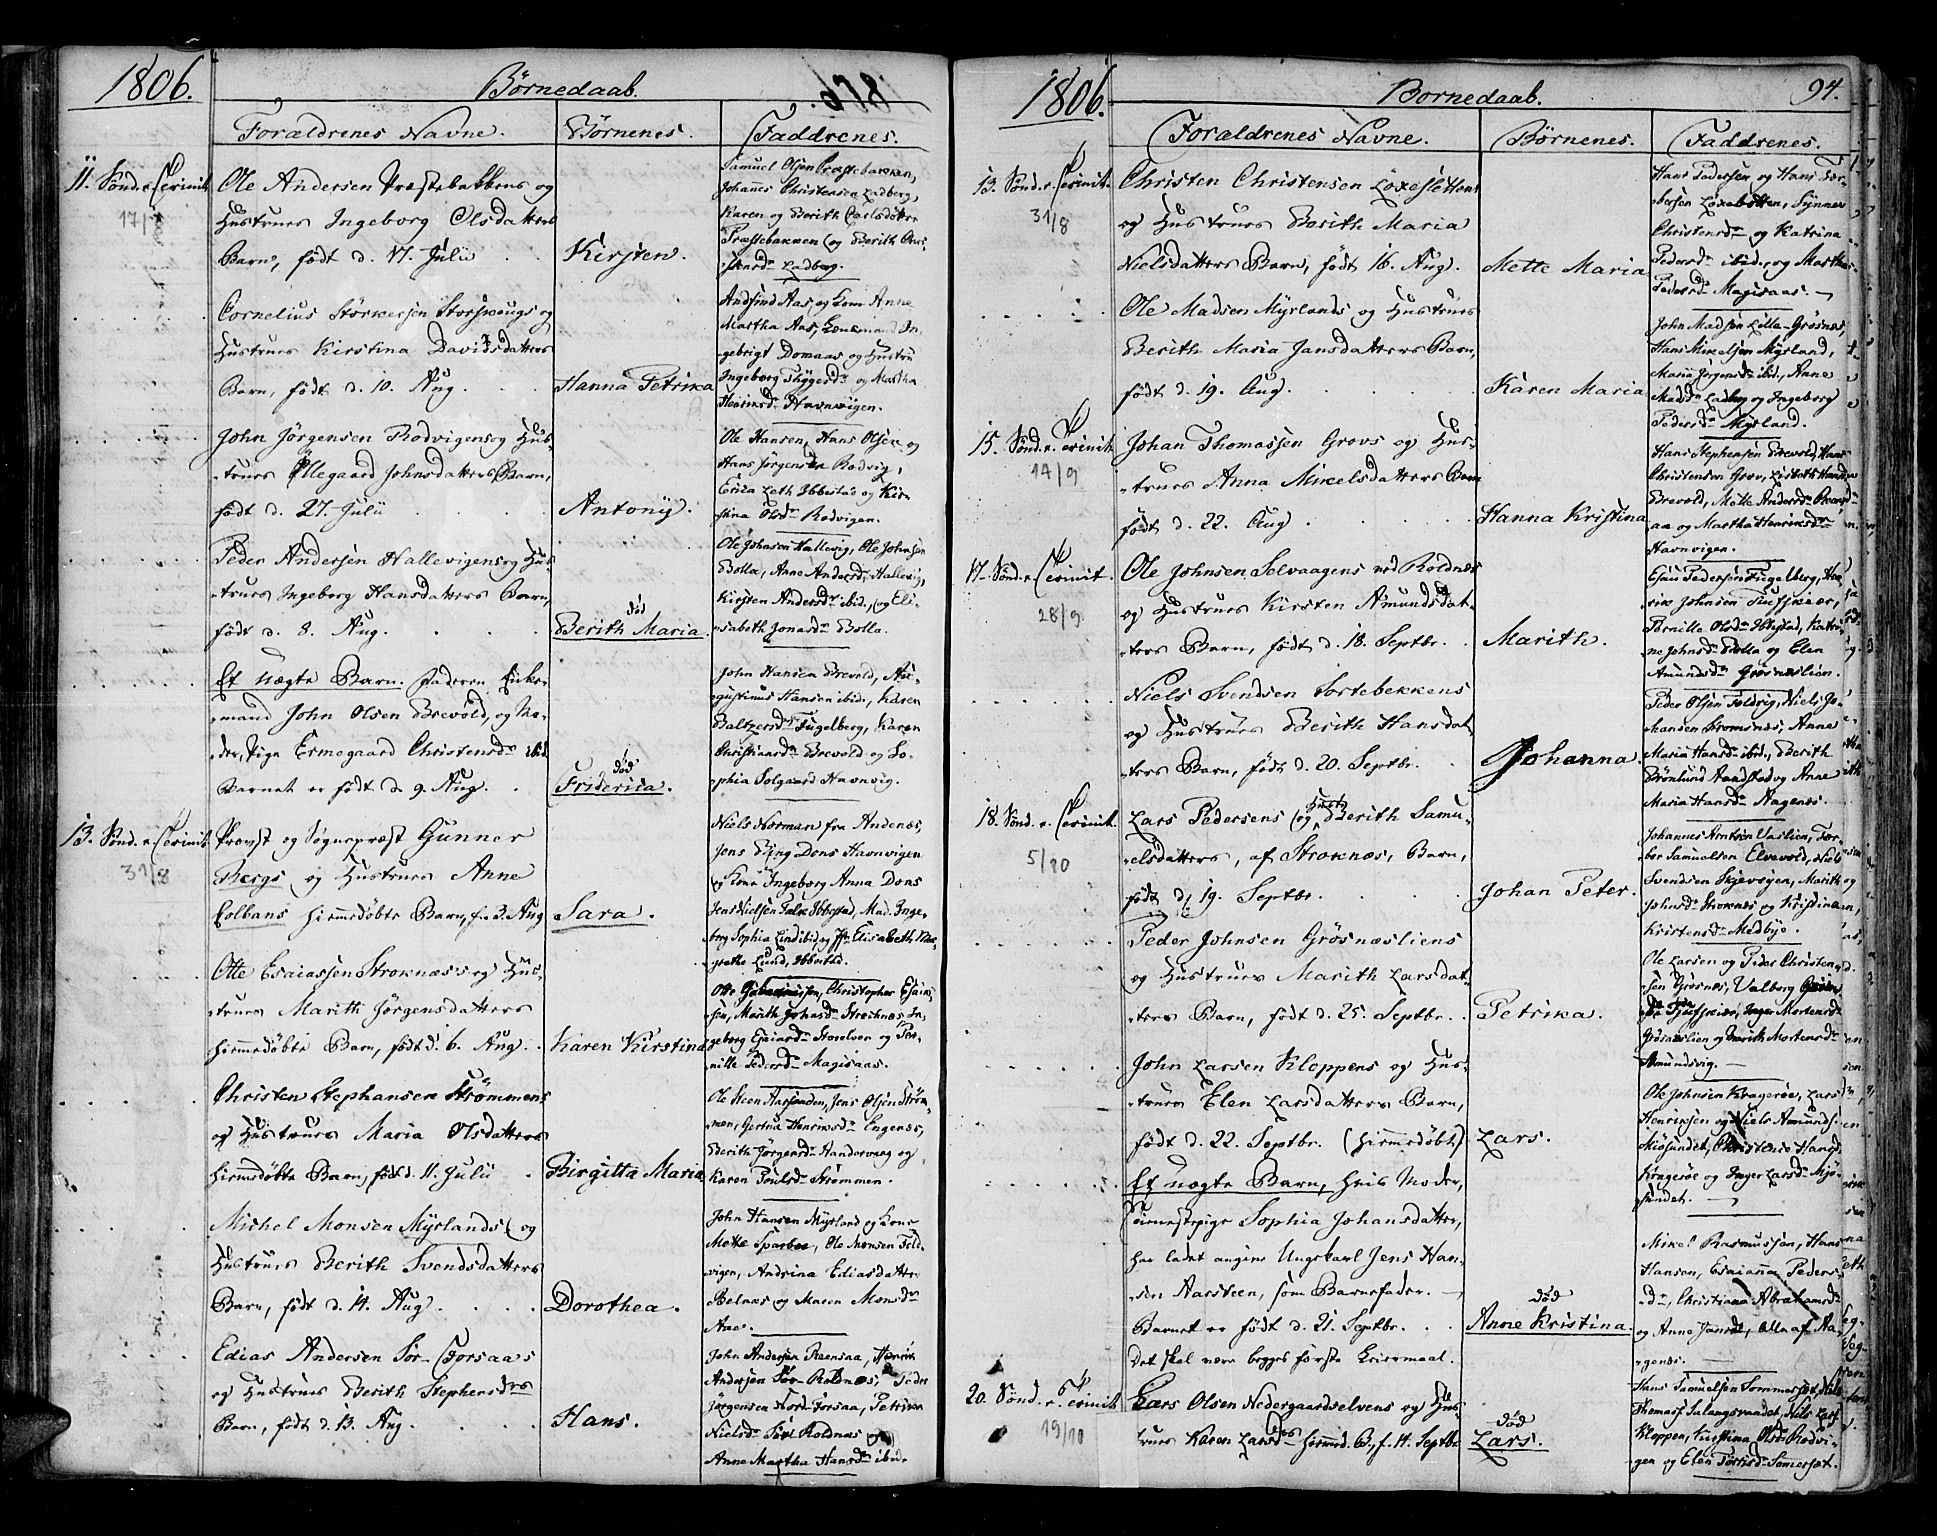 1806.
Børnedaab.
Forældrenes Navne.
Børnenes.
Faddrenes.
11. Sønd. e. Trinit.
17/8
Ole Andersen Præstebakkens og
Hustrues Ingeborg Olsdatters
Barn, født d. 17. Julii
Kirsten.
Samuel Olsen Præstebakken,
Johanes Christensen Ladberg,
Karen og Berith Carlsdøtre
Præstebakken og Berith Chri-
stensdr Ladberg.
Cornelius Størkersen Storskougs og
Hustrues Kirstina Davidsdatters
Barn, født d. 10. Aug.
Hanna Petrika
Andfind Aas og Kone Anne
Martha Aas, Lensmand In-
gebrigt Domaas og Hustru
Ingeborg Thygesdr og Martha
Henriksdr Havnvigen.
John Jørgensen Rodvigens og Hus-
trues Ellegaard Johnsdatters Barn,
født d. 27. Julii
Antony.
Ole Hansen, Hans Olsen og
Hans Jørgensen Rodvig,
Erica Leth Ibbestad og Kir-
stina Olsdr Rodvigen.
Peder Andersen Hallevigens og Hus-
trues Ingeborg Hansdatters Barn,
født d. 8. Aug.
død
Berith Maria.
Ole Johnsen Hallevig, Ole Johnsen
Bolla, Anne Andersdr Hallevig,
Kirsten Andersdr ibid., og Eli-
sabeth Jonasdr Bolla.
Et uægte Barn. Faderen Enke-
mand John Olsen Brevold, og Mo-
der, Pige Ermegaard Christensdr ibid.
Barnet er født d. 9. Aug.
død
Friderica.
John Hansen Brevold, Au-
gustinus Hansen ibid., Karen
Baltzersdr Fugelberg, Karen
Christiansdr Brevold og So-
phia Solgaard Havnvig.
13. Sønd. e. Trinit
31/8
Provst og Sognepræst Gunner
Bergs og Hustrues Anne
Colbans hiemmedøbte Barn, f. 3. Aug
Sara.
Niels Norman fra Andenæs,
Jens Bing Dons Havnvigen
og Kone Ingeborg Anna Dons
Jens Nielsen Falk Ibbestad, Mad. Inge-
borg Sophia Lind ibid og Jfr. Elisabeth Mar-
grethe Lund, Ibbestad.
Otte Esaiassen Stroknæs's og Hus-
trues Marith Jørgensdatters
hiemmedøbte Barn, født d. 6. Aug.
Karen Kirstina
Christopher Esaias-
sen, Marith Johnsdr Stroknæs, In-
geborg Esaiasdr Storelven og Per-
nille Pedersdr Magisaas.
Christen Stephansen Strømmens
og Hustrues Maria Olsdatters
hiemmedøbte Barn, født d. 11. Julii
Birgitta Maria
Ole Steen Aarsanden, Jens Olsen Strøm-
men, Gertrud Henriksdr Engenæs,
Berith Jørgensdr Sandervaag og
Karen Poulsdr Strømmen.
Michel Monsen Myrlands og
Hustrues Berith Svendsdatters
Barn, født d. 14. Aug.
Dorothea.
John Hansen Myrland og Kone
Mette Sparboe, Ole Monsen Fold-
vigen, Andrina Ediasdatter
Belnæs og Maren Monsdr
Aae.
Edias Andersen Sør-Forsaas
og Hustrues Berith Stephensdrs
Barn, født d. 13. Aug.
Hans.
John Andersen Reensaa, Henrik
Andersen Sør-Rolnæs, Peder
Jørgensen Nord-Forsaa, Petrika
Nielsdr Sør Roldnæs og
Anne Martha Hansdr ibid.
1806.
Børnedaab.
94.
Forældrenes Navne.
Børnenes.
Faddrenes.
13. Sønd. e. Trinit.
31/8
Christen Christensen Loxeslettens
og Hustrues Berith Maria
Nielsdatters Barn, født 16. Aug.
Mette Maria
Hans Pedersen og Hans Tor-
bersen Loxebotten, Synnev
Christensdr og Katrina
Pedersdr ibid., og Martha
Pedersdr Magisaas.
Ole Madsen Myrlands og Hustrues
Berith Maria Jansdatters Barn,
født d. 19. Aug.
Karen Maria
John Madsen Lilla-Grosnæs,
Hans Mikelsen Myrland,
Maria Jørgensdr ibid., Anne
Madsdr Ladberg og Ingeborg
Pedersdr Myrland.
15. Sønd. e. Trinit
14/9
Johan Thomassen Grovs og Hus-
trues Anna Mikelsdatters Barn
født d. 22. Aug.
Hanna Kristina
Hans Stephensen Brevold, Hans
Christensen Grov, Lisbeth Hansdr
Brevold, Mette Andersdr Reens-
aa og Martha Henriksdr
Havnvigen.
17. Sønd. e. Trinit.
28/9
Ole Johnsen Selvaagens ved Roldnæs
og Hustrues Kirsten Amundsdat-
ters Barn, født d. 18. Septbr.
Marith.
Esau Pedersen Fugelberg, Hen-
rik Johnsen Fuffskiær,
Pernille Olsdr Ibbestad, Katri-
ne Johnsdr Bolla og Elen
Amundsdr Grosnæslien.
Niels Svendsen Sortebekkens
og Hustrues Berith Hansdat-
ters Barn, født d. 20. Septbr.
Johanna.
Peder Olsen Foldvig, Niels Jo-
hansen Stromsnæs, Anne
Maria Hansdr ibid., Berith
Brønlund Sandstad og Anne
Maria Hansdr Aagenæs.
18. Sønd. e. Trinit.
5/10
Lars Pedersens og Hustr. Berith Samu-
elsdatters, af Stroknæs, Barn,
født d. 19. Septbr.
Johan Peter.
Johannes Arntsen Vaslien, Tor-
ber Samuelsen Elvevold, Niels
Svendsen Skjevøyen, Marith
Johnsdr Stroknæs og Kristina
Kristensdr Medbye.
Peder Johnsen Grøsnæsliens
og Hustrues Marith Larsdat-
ters Barn, født d. 25. Septbr.
Petrika.
Ole Larsen og Peder Christen-
sen Grøsnæs, Valborg
Fuffskiær, Inger Mortensdr
Grøsnæslien og Marith Mortensdr
Amundsvig.
John Larsen Kloppens og Hus-
trues Elen Larsdatters Barn,
født d. 22. Septbr. (hiemmedøbt)
Lars.
Ole Johnsen Kragerøe, Lars
Henriksen og Niels Amunds.
Miøsundet, Christence Hansdr
Kragerøe og Inger Larsdr Mjø-
sundet.
Et uægte Barn, hvis Moder,
Tienestepige Sophia Johansdatter,
har ladet angive Ungekarl Jens Han-
sen Aarsteen, som Barnefader.
Barnet er født d. 21. Septbr.
Det skal være begges første Leiermaal.
død
Anne Kristina.
Mikel Rasmussen, Hans
Hansen, Esaianna Peders-
dr, Christiana Abrahamsdr
og Anne Jansdr, alle af Aa-
genæs.
20. Sønd. e. Trinit
19/10
Lars Olsen Nedergaardselvens og Hus-
trues Karen Larsdrs hiemmd. B., f. 14. Septbr
død
Lars.
Hans Samuelsen Sommersæt, Niels
Thomass. Salangsvandet, Nils Lars.
Kloppen, Kirstina Olsdr Rodvi-
gen og Elen Torrisdr Somersæt.